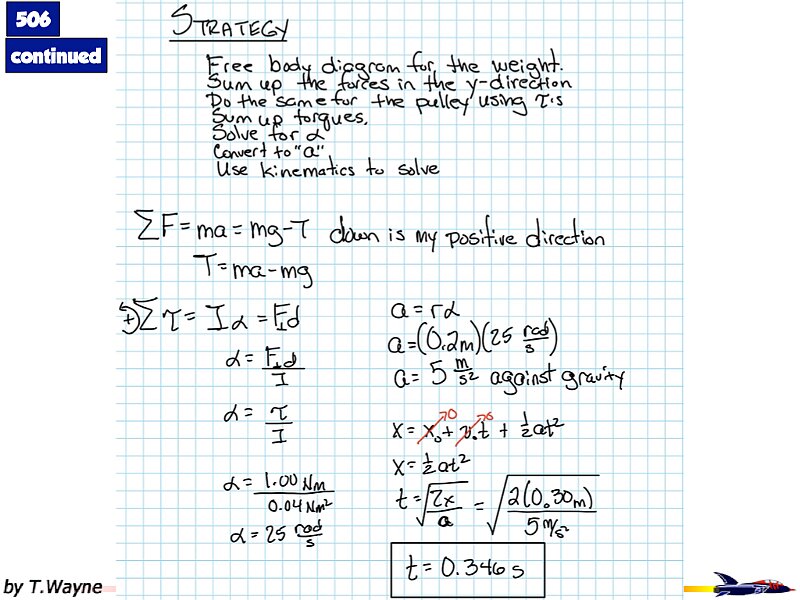 506
continued
STRATEGY
Free body diagram for the weight.
Sum up the forces in the y-direction
Do the same for the pulley using τ's
Sum up torques.
Solve for α
Convert to "a"
Use kinematics to solve
ΣF = ma = mg-T down is my positive direction
T = ma-mg
+ Στ = Iα = F⊥d
α = F⊥d / I
α = τ / I
α = 1.00 Nm / 0.04 Nm²
α = 25 rad/s
a = rα
a = (0.2m)(25 rad/s)
a = 5 m/s² against gravity
x = x₀ + v₀t + ½at²
0 0
x = ½at²
t = √(2x/a) = √(2(0.30m) / 5 m/s²)
t = 0.346 s
by T.Wayne